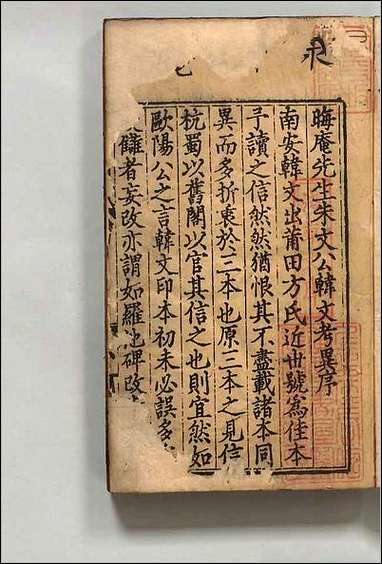 晦庵先生朱文公韓文考異序
南安韓文出莆田方氏近世號為佳本
予讀之信然然猶恨其不盡載諸本同
異而多折衷於三本也原三本之見信
杭蜀以舊閣以官其信之也則宜然如
歐陽公之言韓文印本初未必誤多
讎者妄改亦謂如羅池碑改